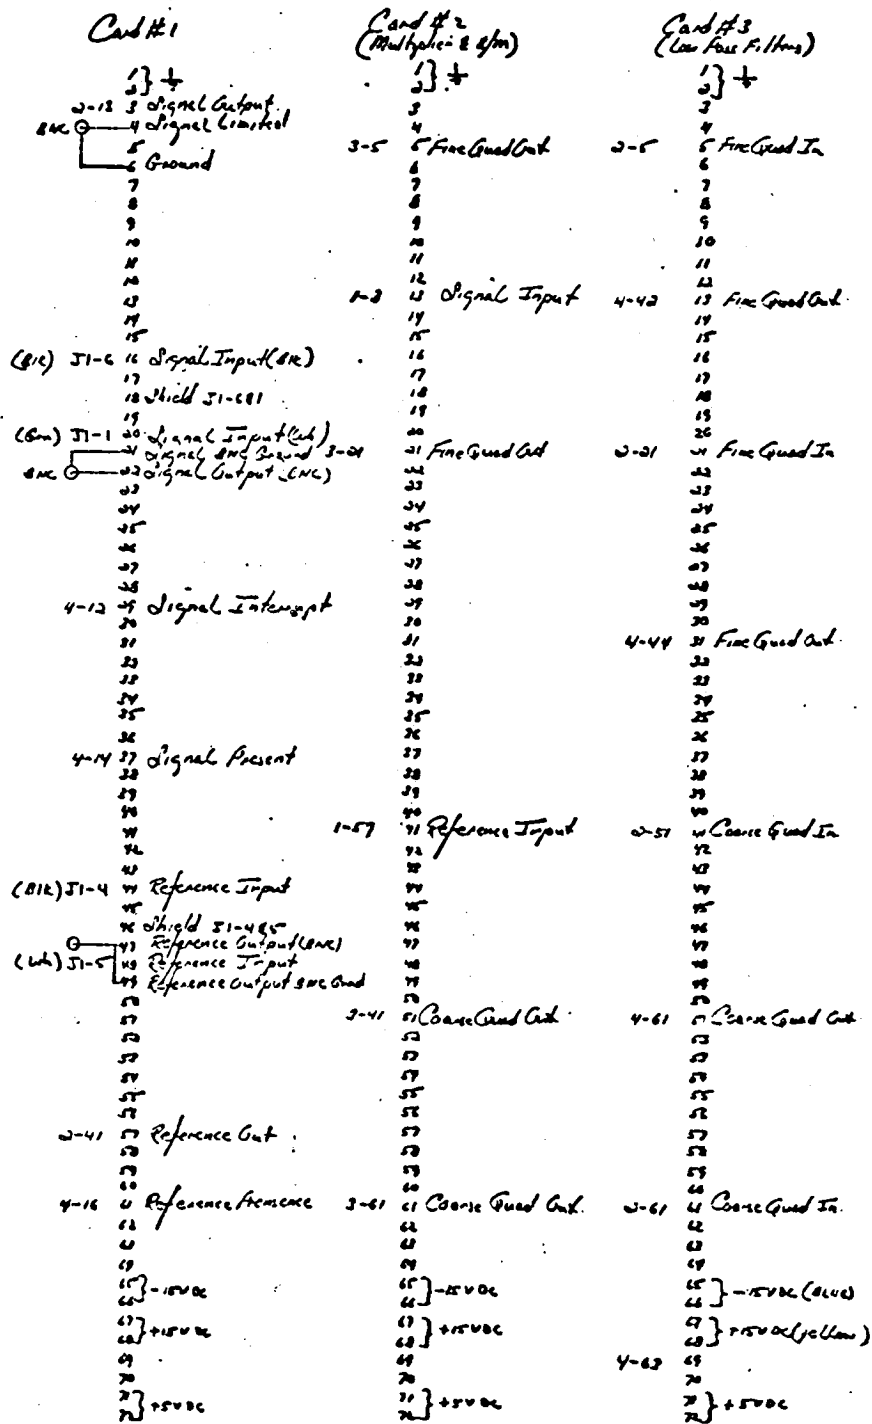 Card #1
1
2
2-13 3 Signal Output
BNC 4 Signal Limited
5
6 Ground
7
8
9
10
11
12
13
14
15
(Blk) J1-6 16 Signal Input (Blk)
17
18 Shield J1-6&1
19
J1-1 20 Signal Input (wh)
21 Signal BNC Ground
BNC 22 Signal Output (BNC)
23
24
25
26
27
28
4-12 29 Signal Interrupt
30
31
32
33
34
35
36
4-14 37 Signal Present
38
39
40
41
42
43
(Blk) J1-4 44 Reference Input
45
46 Shield J1-4&5
47 Reference Output (BNC)
(wh) J1-5 48 Reference Input
49 Reference Output BNC Grnd
50
51
52
53
54
55
56
2-41 57 Reference Out
58
59
60
4-16 61 Reference Presence
62
63
64
65 } -15VDC
66
67 } +15VDC
68
69
70
71 } +5VDC
72
Card #2
(Multiplier & S/m)
1
2
3
4
3-5 5 Fine Quad Out
6
7
8
9
10
11
12
1-3 13 Signal Input
14
15
16
17
18
19
20
3-21 21 Fine Quad Out
22
23
24
25
26
27
28
29
30
31
32
33
34
35
36
37
38
39
40
1-57 41 Reference Input
42
43
44
45
46
47
48
49
50
3-41 51 Coarse Quad Out
52
53
54
55
56
57
58
59
60
3-61 61 Coarse Quad Out
62
63
64
65 } -15VDC
66
67 } +15VDC
68
69
70
71 } +5VDC
72
Card #3
(Low Pass Filters)
1
2
3
4
2-5 5 Fine Quad In
6
7
8
9
10
11
12
4-42 13 Fine Quad Out
14
15
16
17
18
19
20
2-21 21 Fine Quad In
22
23
24
25
26
27
28
29
30
4-44 31 Fine Quad Out
32
33
34
35
36
37
38
39
40
2-51 41 Coarse Quad In
42
43
44
45
46
47
48
49
50
4-61 51 Coarse Quad Out
52
53
54
55
56
57
58
59
60
2-61 61 Coarse Quad In
62
63
64
65 } -15VDC (Blue)
66
67 } +15VDC (yellow)
68
4-63 69
70
71 } +5VDC
72